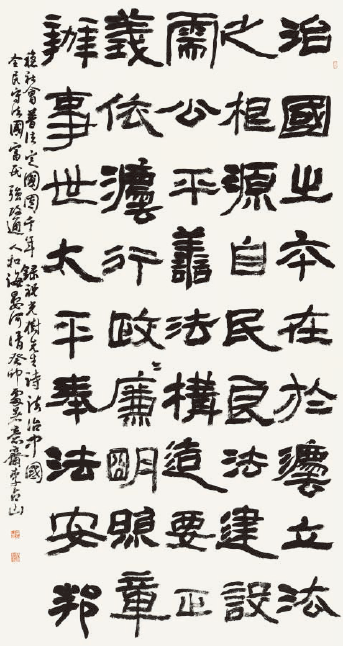 治國之夲在於灋立法
之根源自民良法建設
需公平譱法構造要正
義依灋行政〻廉朙照章
辦事世太平奉法安邦
穩社會普法定國國千年 錄光樹先生诗 法治中國
全民守法國富民強政通人和海晏河清癸卯夏